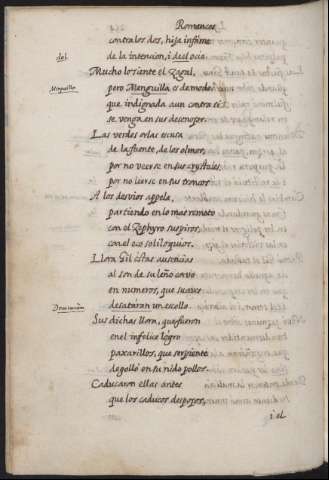 Romances
contra los dos, hija infame
del
de la intencion, i del ocio.
Mucho lo siente el Zagal,
Minguilla
pero Menguilla es de modo
que indignada aun contra si
se venga en sus desenojos.
Las verdes orlas escusa
de la fuente, de los olmos,
por no veerse en sus crystales,
por no leerse en sus troncos
A los desvios appela,
partiendo en lo mas remoto
con el Zephyro suspiros,
con el eco soliloquios.
Llora Gil estas ausencias
al son de su leño corvo
en numeros, que suaves
desataran un escollo.
Sus dichas llora, que fueron
en el infelice logro
paxarillos, que serpiente
degollò en su nido pollos.
Caducaron ellas antes
que los caducos despojos,
i el